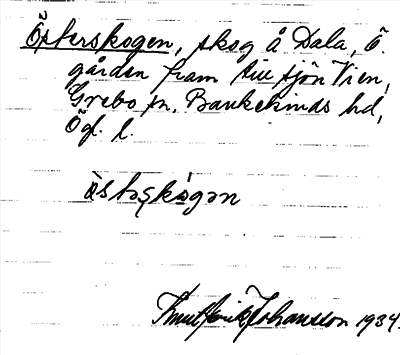 Österskogen, skog å Dala, Ö.
gården fram till sjön Vien,
Grebo sn. Bankekinds hd,
Ögl. l.
östəşkògən
Knut Johansson 1934.